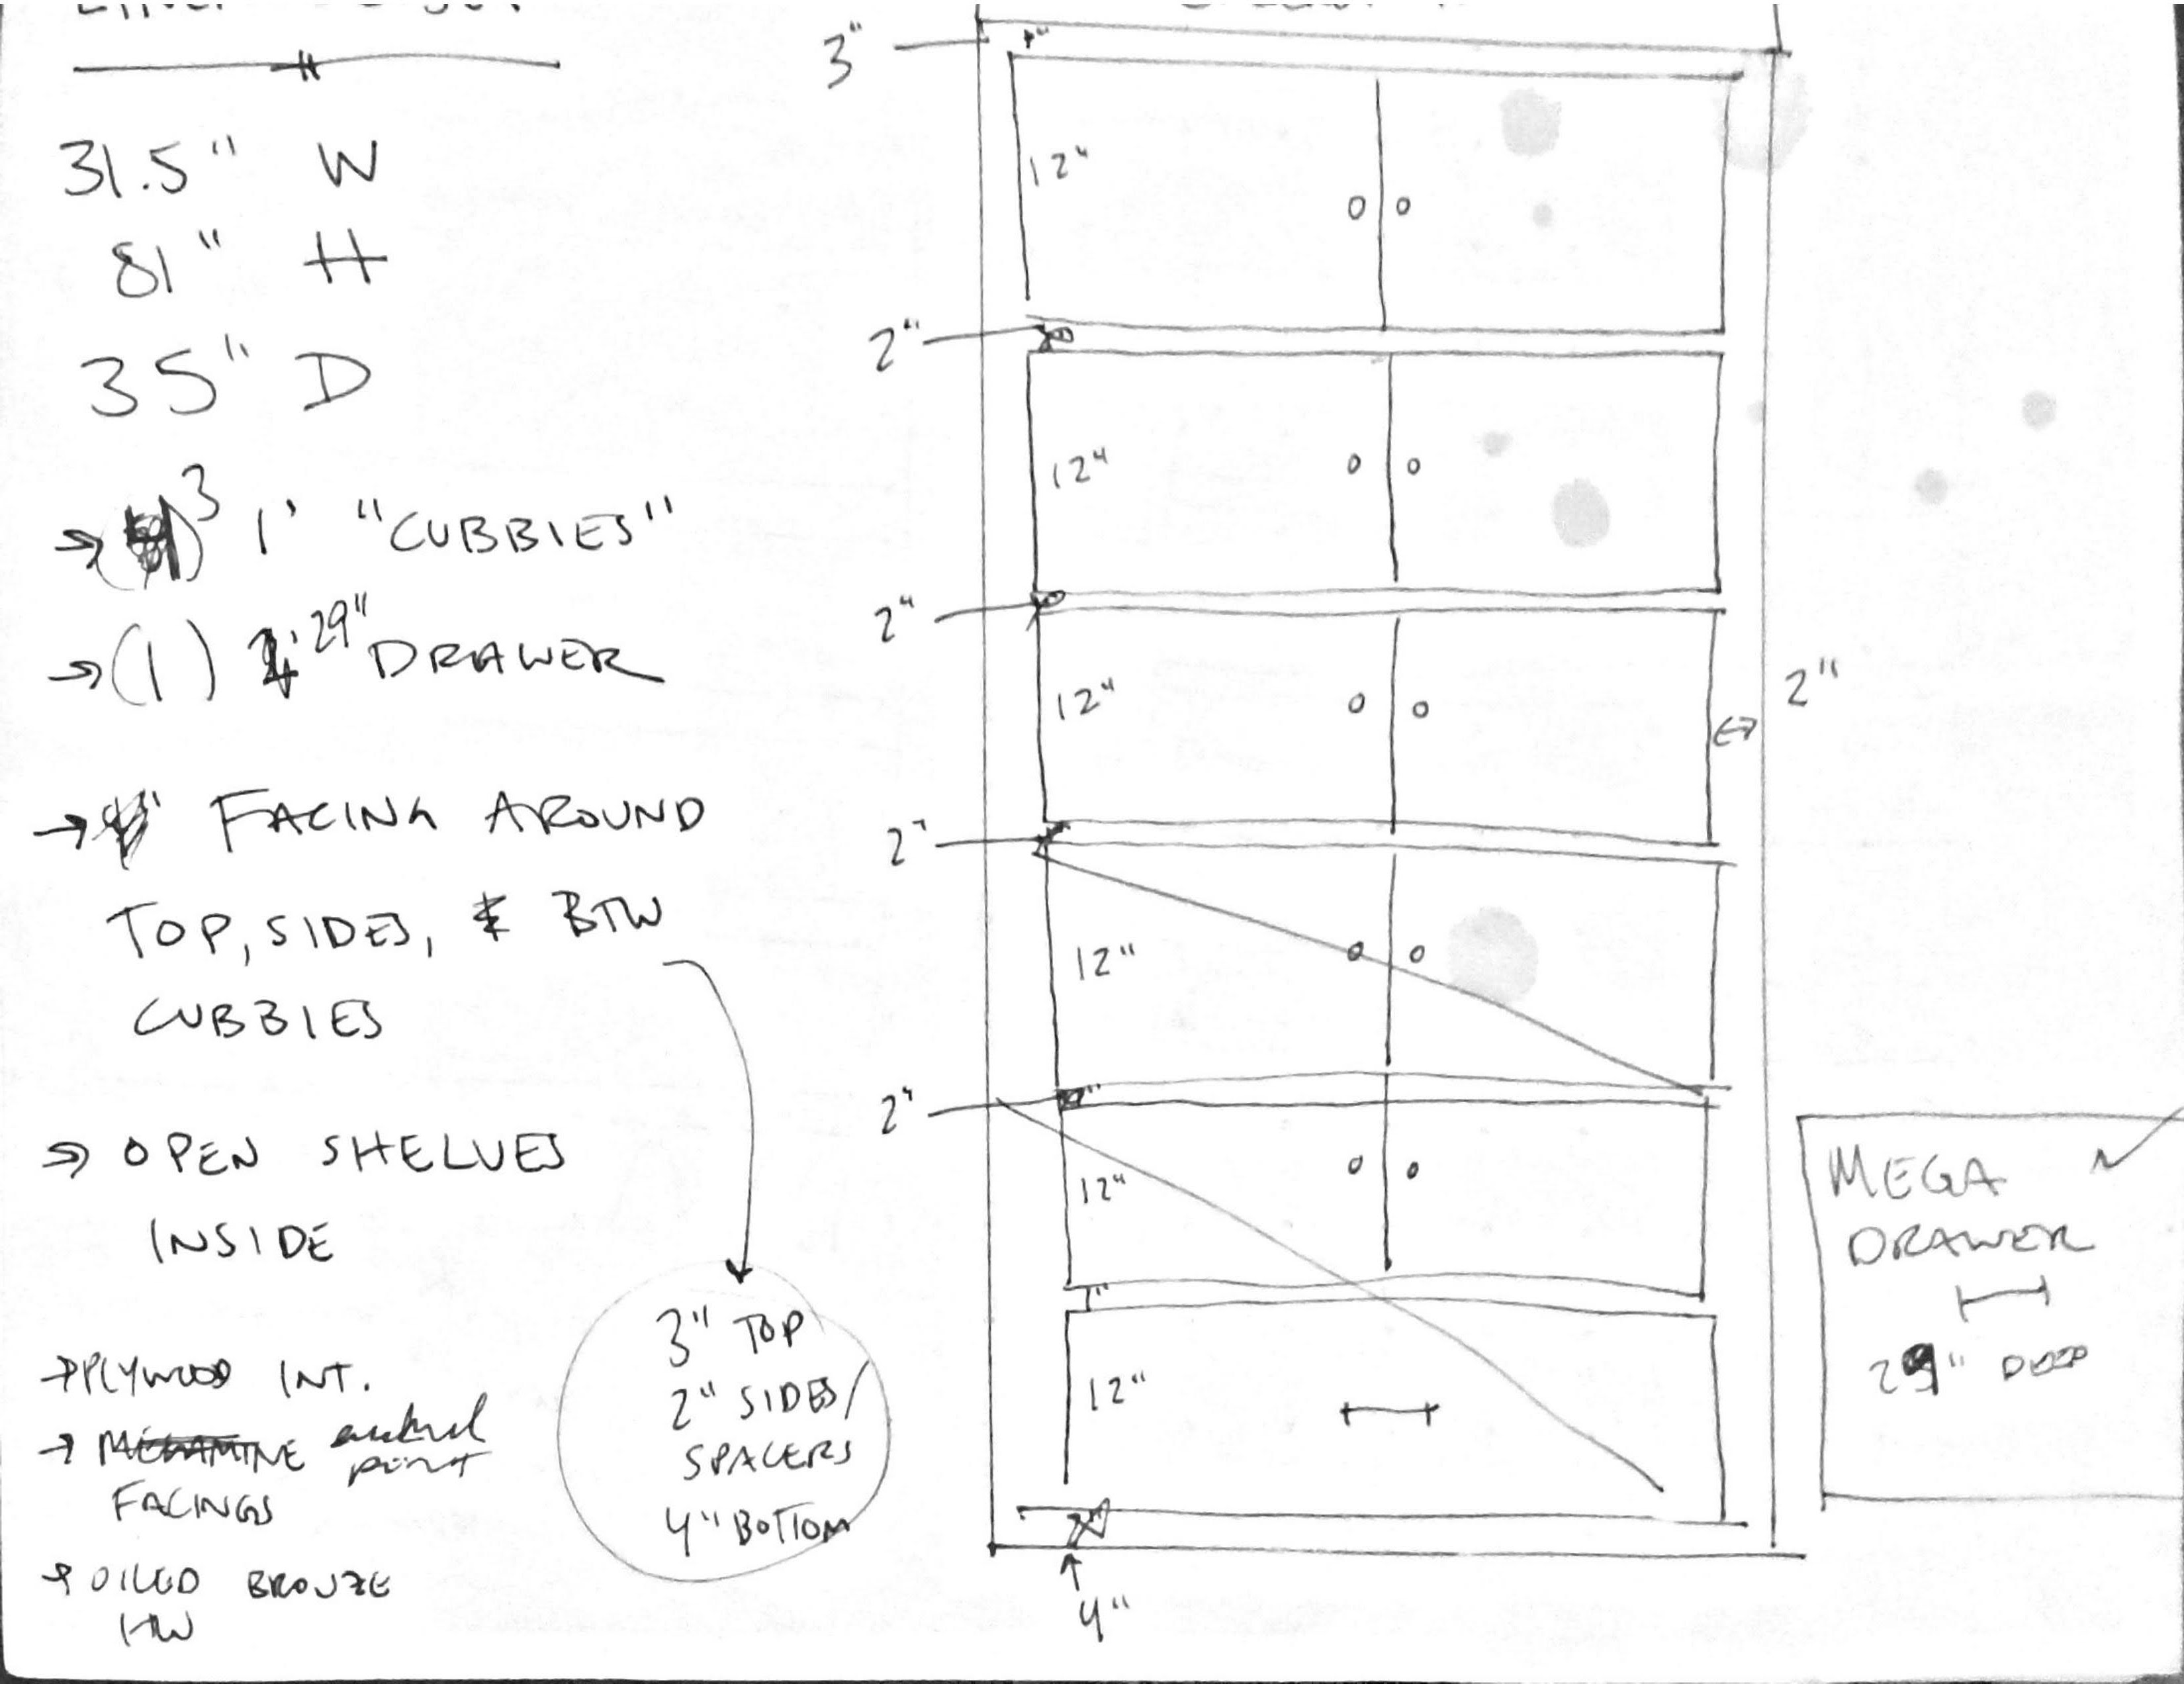 31.5" W
81" H
35" D
→ 3 1' "CUBBIES"
→ (1) 29" DRAWER
→ FACING AROUND
TOP, SIDES, & BTW
CUBBIES
→ OPEN SHELVES
INSIDE
→ PLYWOOD INT.
→ MELAMINE
FACINGS
→ OILED BRONZE
HW
3" TOP
2" SIDES/
SPACERS
4" BOTTOM
3"
12"
2"
12"
2"
12"
2"
2"
12"
2"
12"
12"
4"
MEGA
DRAWER
29" DEEP